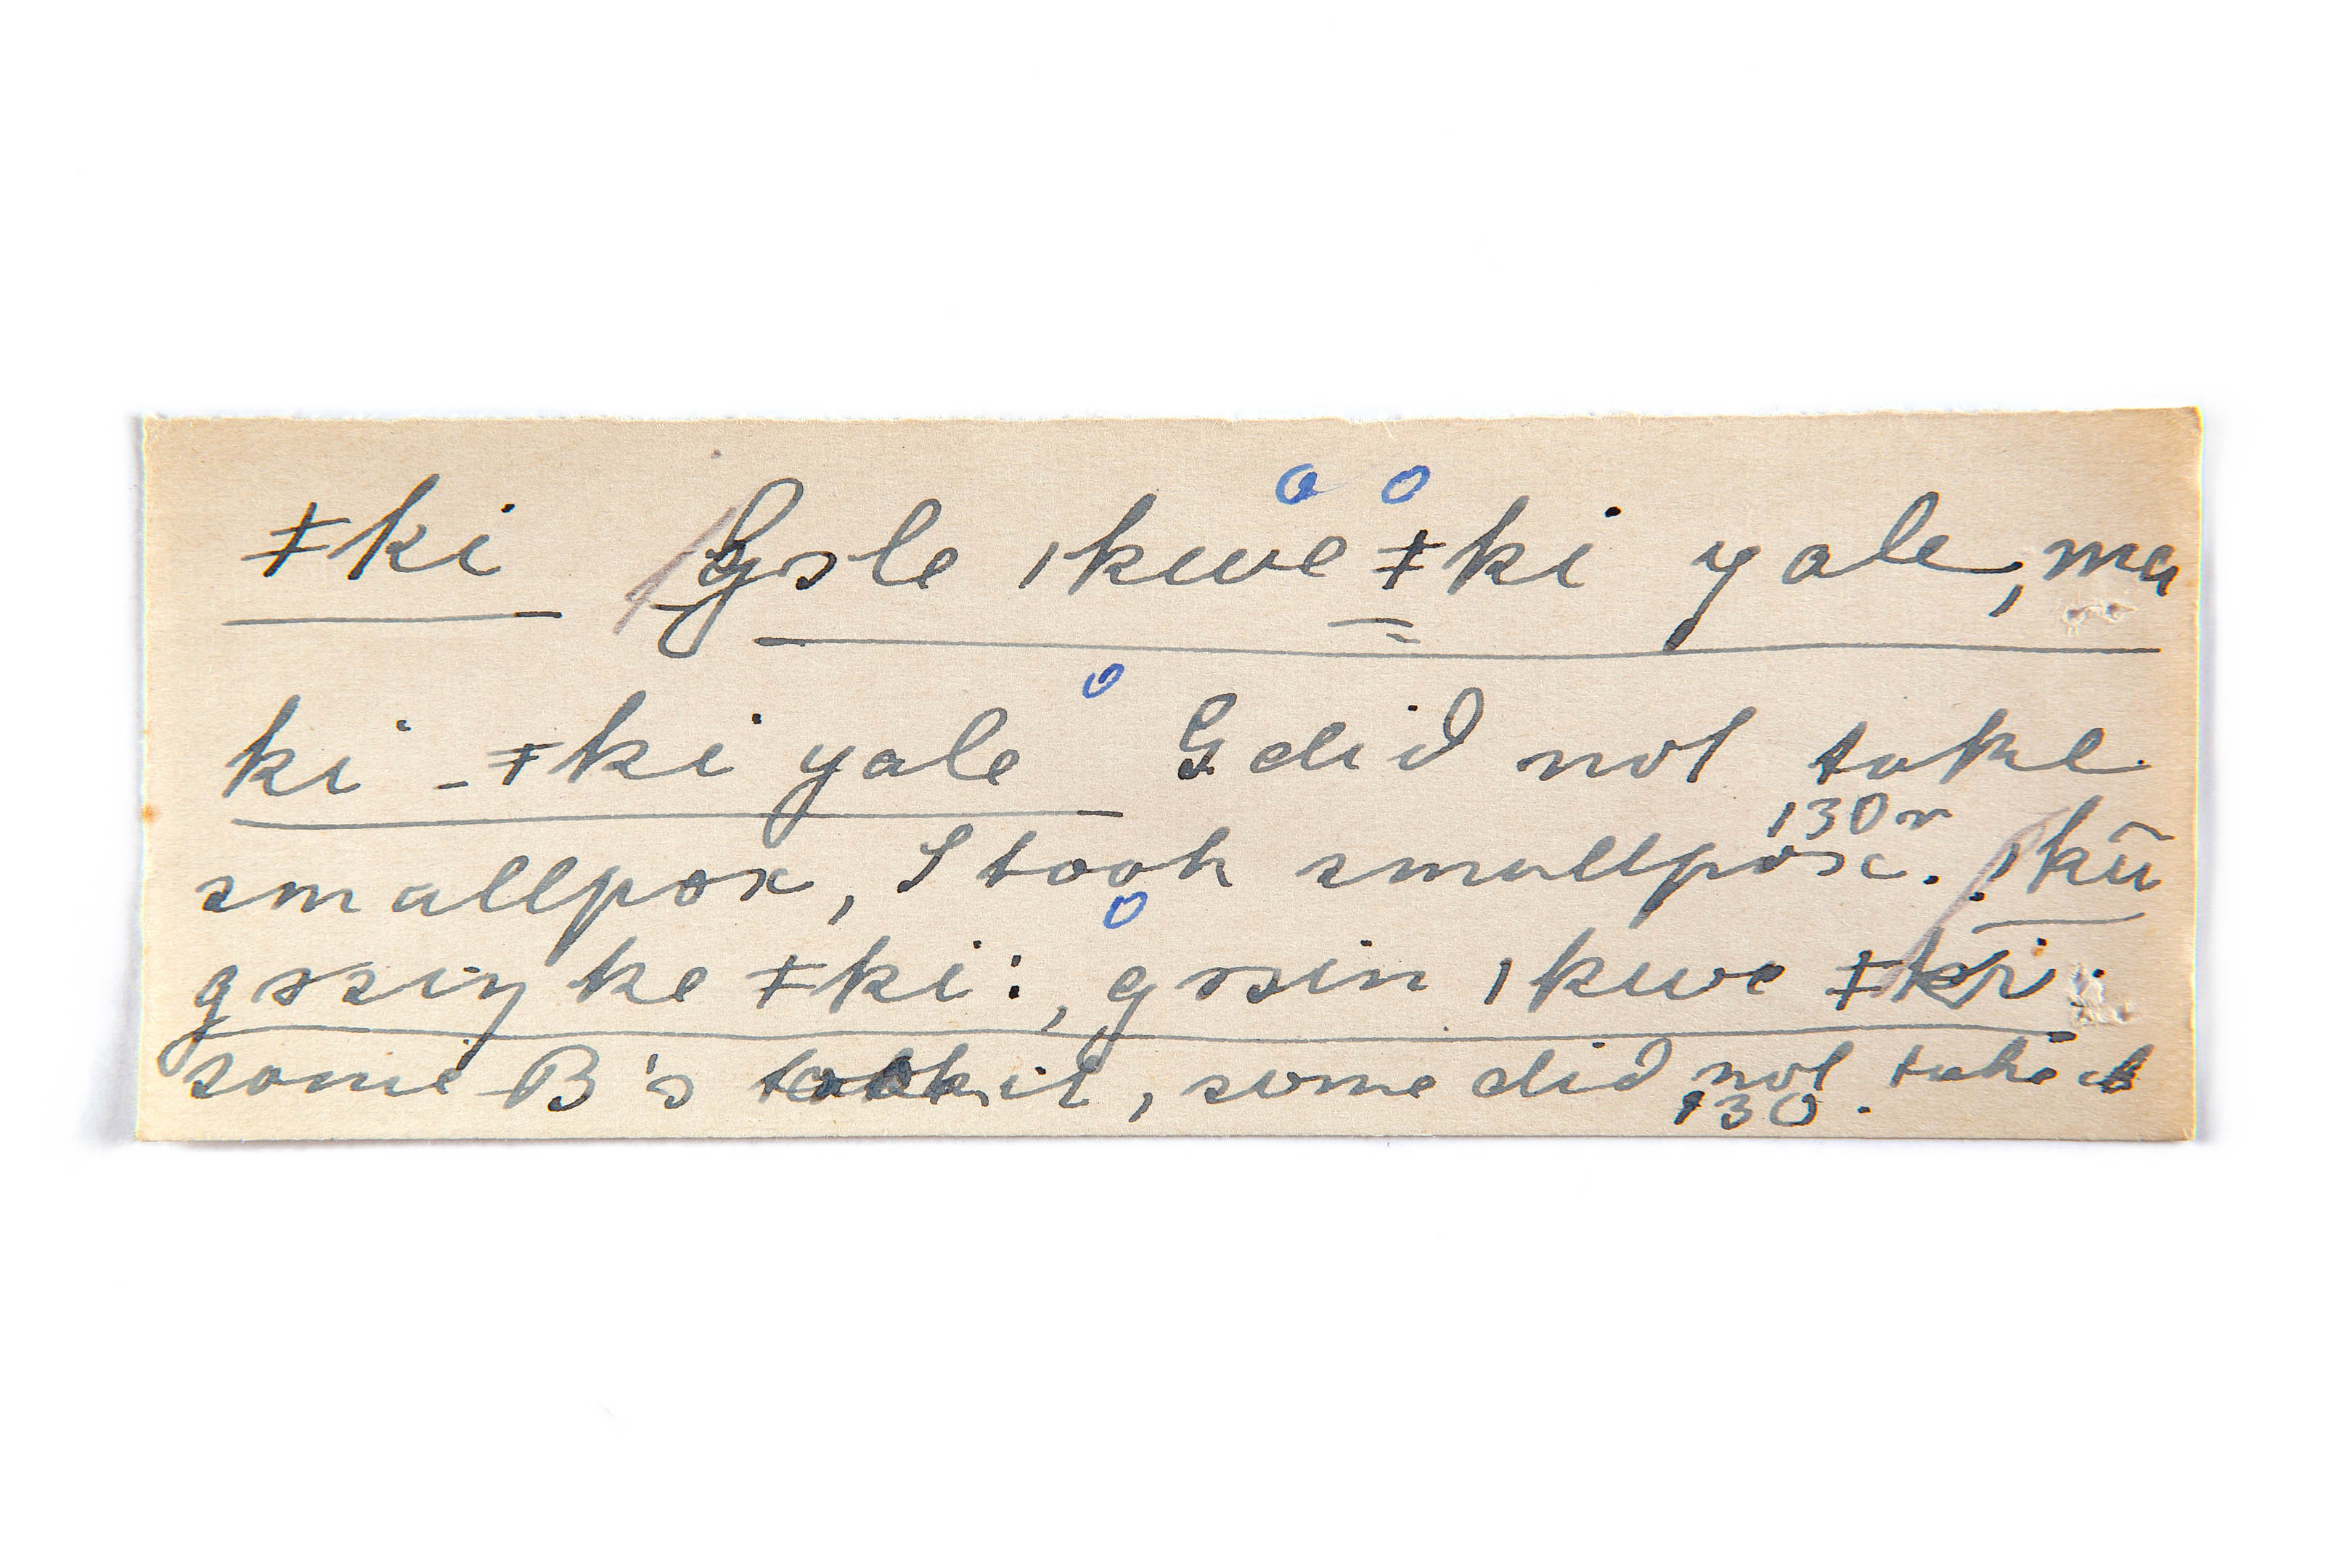 ǂki Gɔle ǀkwe ǂki yale, ma
ki - ǂki yale G did not take
smallpox, I took smallpox. 130r ǀkū
gɔsiŋ ke ǂki:, gɔsin ǀkwe ǂki.
some B's took it, some did not take it
130.